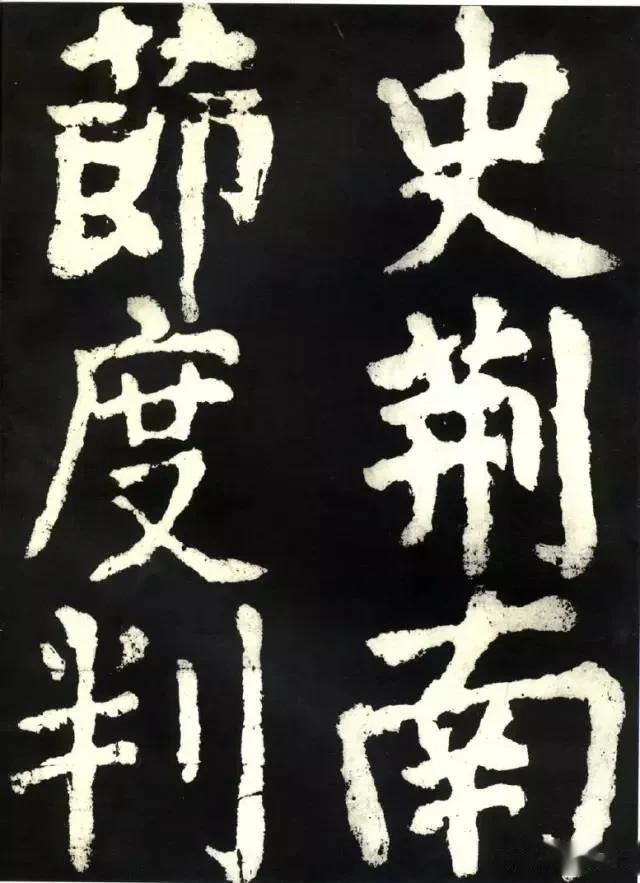 史荆南
節度判